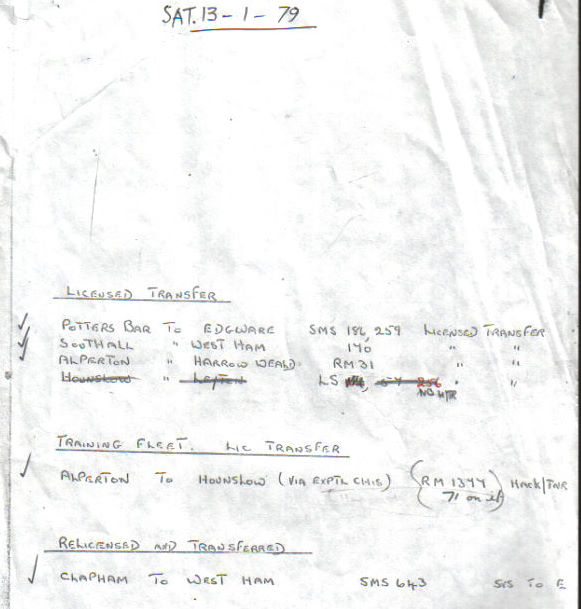 SAT. 13-1-79
LICENSED TRANSFER
POTTERS BAR TO EDGWARE SMS 186, 259 LICENSED TRANSFER
SOUTHALL " WEST HAM 170 " "
ALPERTON " HARROW WEALD. RM 31 " "
HOUNSLOW " LEYTON LS 256 " "
NO MTR
TRAINING FLEET. LIC TRANSFER
ALPERTON TO HOUNSLOW (VIA EXPTL CHIS) (RM 1344 HACK/TNR
71 on it)
RELICENSED AND TRANSFERRED
CLAPHAM TO WEST HAM SMS 643 TO E